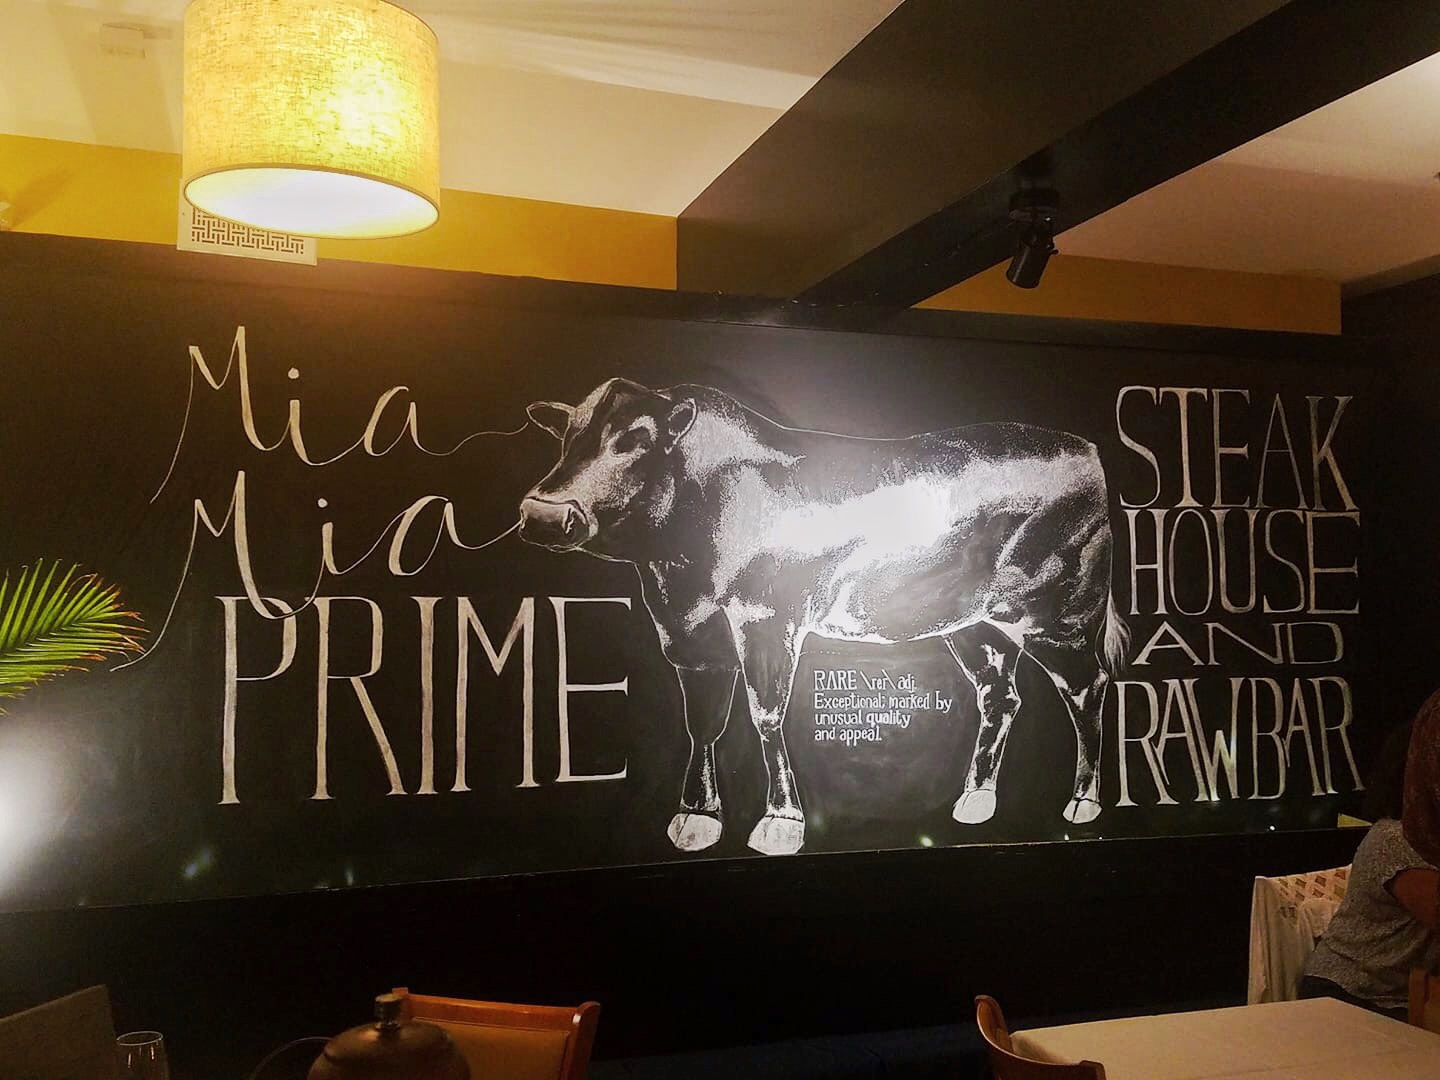 Mia
Mia
PRIME
RARE \rer\ adj.
Exceptional; marked by
unusual quality
and appeal.
STEAK
HOUSE
AND
RAWBAR